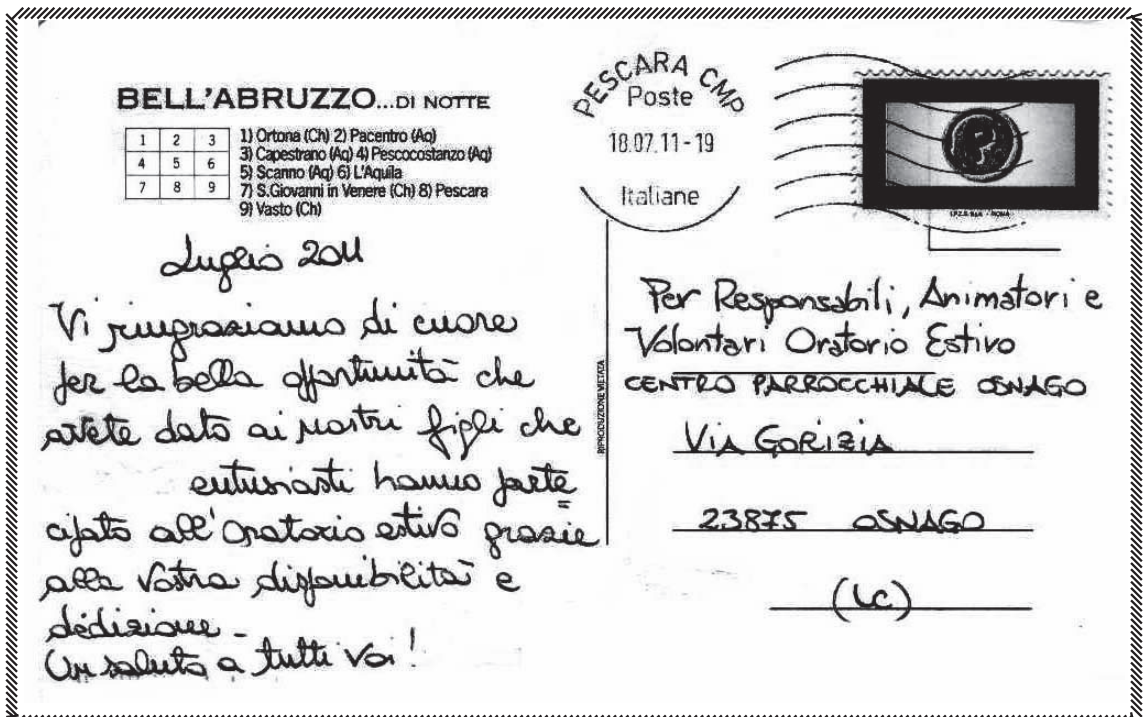 BELL'ABRUZZO...DI NOTTE
1 2 3
4 5 6
7 8 9
1) Ortona (Ch) 2) Pacentro (Aq)
3) Capestrano (Aq) 4) Pescocostanzo (Aq)
5) Scanno (Aq) 6) L'Aquila
7) S.Giovanni in Venere (Ch) 8) Pescara
9) Vasto (Ch)
PESCARA CMP
Poste
18.07.11-19
Italiane
I.P.Z.S. S.p.A. - ROMA
Luglio 2011
Vi ringraziamo di cuore
per la bella opportunità che
avete dato ai nostri figli che
entusiasti hanno parte=
cipato all'Oratorio estivo grazie
alla Vostra disponibilità e
dedizione -
Un saluto a tutti Voi!
RIPRODUZIONE VIETATA
Per Responsabili, Animatori e
Volontari Oratorio Estivo
CENTRO PARROCCHIALE OSNAGO
VIA GORIZIA
23875 OSNAGO
(LC)